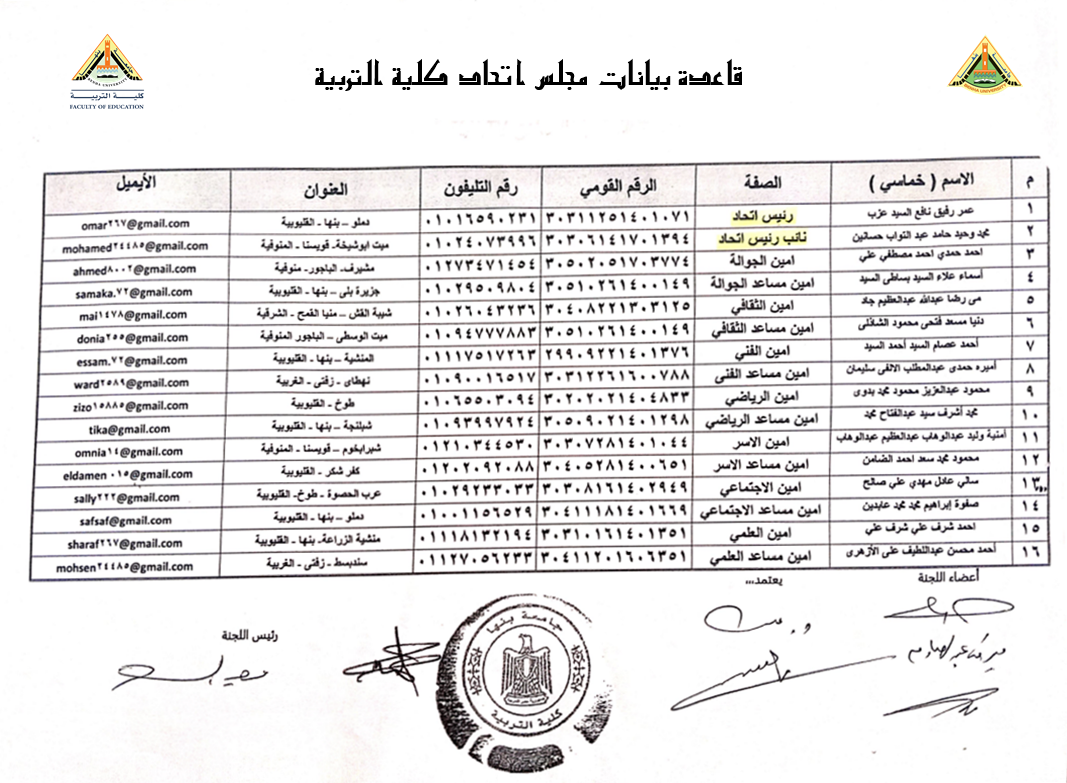 قاعدة بيانات مجلس اتحاد كلية التربية
كلية التربية
FACULTY OF EDUCATION
BENHA UNIVERSITY
م الاسم ( خماسي ) الصفة الرقم القومي رقم التليفون العنوان الأيميل
١ عمر رفيق نافع السيد عزب رئيس اتحاد ٣٠٣١١٢٥١٤٠١٠٧١ ٠١٠١٦٥٩٠٢٣١ دملو – بنها - القليوبية omar٢٦٧@gmail.com
٢ محمد وحيد حامد عبد التواب حسانين نائب رئيس اتحاد ٣٠٣٠٦١٤١٧٠١٣٩٤ ٠١٠٢٤٠٧٣٩٩٦ ميت ابوشيخة- قويسنا - المنوفية mohamed٢٤٤٨٥@gmail.com
٣ احمد حمدي احمد مصطفي علي امين الجوالة ٣٠٥٠٢٠٥١٧٠٣٧٧٤ ٠١٢٧٣٤٧١٤٥٤ مشيرف- الباجور- منوفية ahmed٨٠٠٢@gmail.com
٤ أسماء علاء السيد بساطى السيد امين مساعد الجوالة ٣٠٥١٠٢٦١٤٠٠١٤٩ ٠١٠٢٩٥٠٩٨٠٤ جزيرة بلى – بنها - القليوبية samaka.٧٢@gmail.com
٥ مى رضا عبدالله عبدالعظيم جاد امين الثقافي ٣٠٤٠٨٢٢١٣٠٣١٢٥ ٠١٠٢٦٠٤٣٢٣٦ شيبة القش – منيا القمح - الشرقية mai١٤٧٨@gmail.com
٦ دنيا مسعد فتحى محمود الشاذلى امين مساعد الثقافي ٣٠٥١٠٢٦١٤٠٠١٤٩ ٠١٠٩٤٧٧٧٨٨٣ ميت الوسطى – الباجور المنوفية donia٢٥٥@gmail.com
٧ أحمد عصام السيد أحمد السيد امين الفني ٢٩٩٠٩٢٢١٤٠١٣٧٦ ٠١١١٧٥١٧٢٦٣ المنشية – بنها - القليوبية essam.٧٢@gmail.com
٨ أميره حمدى عبدالمطلب الالفى سليمان امين مساعد الفنى ٣٠٣١٢٢٦١٦٠٠٧٨٨ ٠١٠٩٠٠١٦٥١٧ نهطاى - زفتى - الغربية ward٢٥٨٩@gmail.com
٩ محمود عبدالعزيز محمود محمد بدوى امين الرياضي ٣٠٢٠٢٠٢١٤٠٤٨٣٣ ٠١٠٦٥٥٠٣٠٩٤ طوخ - القليوبية zizo١٥٨٨٥@gmail.com
١٠ محمد أشرف سيد عبدالفتاح محمد امين مساعد الرياضي ٣٠٥٠٩٠٢١٤٠١٢٩٨ ٠١٠٩٣٩٩٧٩٢٤ شبلنجة – بنها - القليوبية tika@gmail.com
١١ أمنية وليد عبدالوهاب عبدالعظيم عبدالوهاب امين الاسر ٣٠٣٠٧٢٨١٤٠١٠٤٤ ٠١٢١٠٣٤٤٥٣٠ شبرابخوم – قويسنا - المنوفية omnia١٤@gmail.com
١٢ محمود محمد سعد احمد الضامن امين مساعد الاسر ٣٠٤٠٥٢٨١٤٠٠٦٥١ ٠١٢٠٢٠٩٢٠٨٨ كفر شكر - القليوبية eldamen ٠١٥@gmail.com
١٣ سالي عادل مهدي علي صالح امين الاجتماعي ٣٠٣٠٨١٦١٤٠٢٩٤٩ ٠١٠٢٩٢٣٣٠٣٣ عرب الحصوة - طوخ- القليوبية sally٢٢٢@gmail.com
١٤ صفوة إبراهيم محمد محمد عابدين امين مساعد الاجتماعي ٣٠٤١١١٨١٤٠١٦٦٩ ٠١٠٠١١٥٦٥٢٩ دملو – بنها - القليوبية safsaf@gmail.com
١٥ احمد شرف علي شرف علي امين العلمي ٣٠٣١٠١٦١٤٠١٣٥١ ٠١١١٨١٣٢١٩٤ منشية الزراعة- بنها - القليوبية sharaf٢٦٧@gmail.com
١٦ أحمد محسن عبداللطيف على الأزهرى امين مساعد العلمي ٣٠٤١١٢٠١٦٠٦٣٥١ ٠١١٢٧٠٥٦٢٣٣ سندبسط - زفتى - الغربية mohsen٢٤٤٨٥@gmail.com
أعضاء اللجنة
يعتمد،،،
رئيس اللجنة
جامعة بنها
كلية التربية